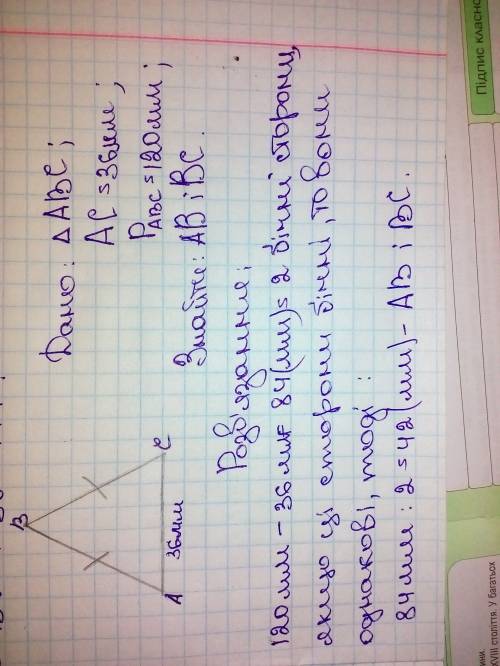 B
A
C
36мм
Дано: △ ABC;
AC = 36мм;
P ABC = 120мм;
Знайти: AB і BC.
Розв'язання:
120мм - 36мм = 84(мм) = 2 бічні сторони,
якщо ці сторони бічні, то вони
однакові, тоді:
84мм : 2 = 42(мм) - AB і BC.
Підпис класно
VIII. століття. У багатьох